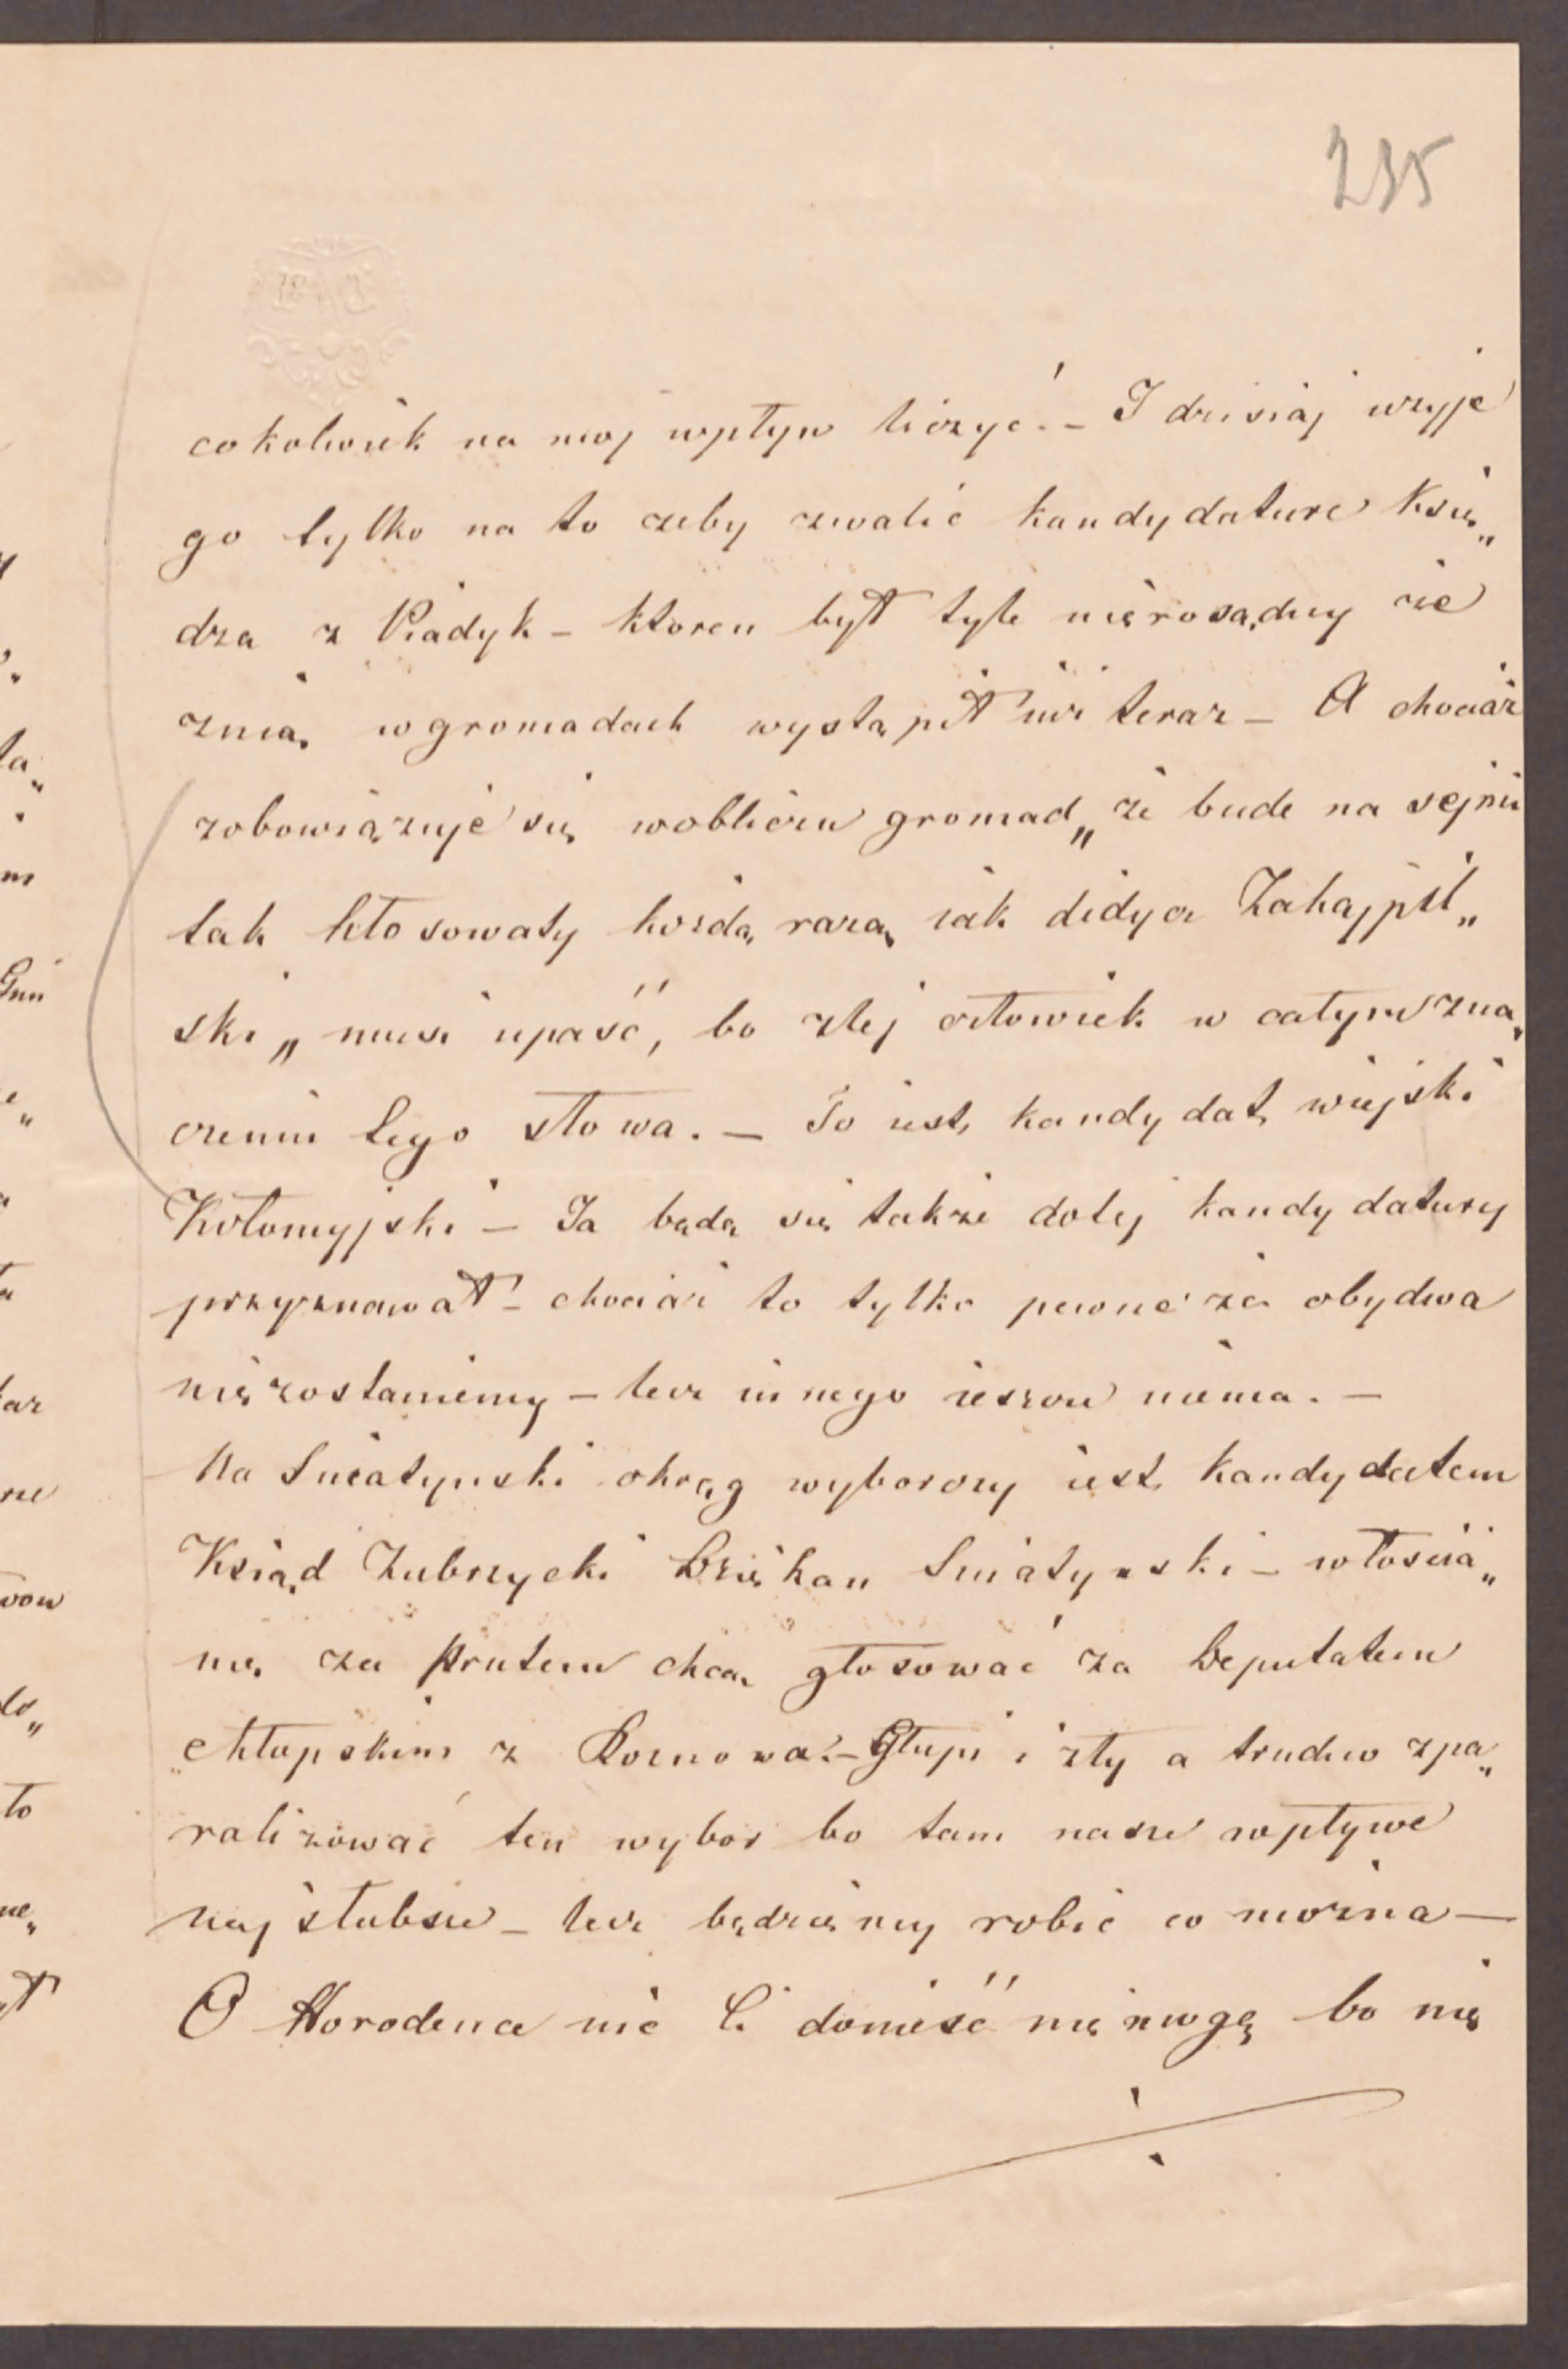 235
cokolwiek na moj wpływ liczyć. – I dzisiaj uzyje
go tylko na to azeby zwalić kandydature Księ„
dza z Piadyk – ktoren był tyle nierosądny że
znią w gromadach wystąpił już teraz – A chociaż
zobowiązuje się wobliczu gromad „ że bude na sejmi
tak hłosowaty kozdą razą jak didycz Zahajpil„
ski „ musi upaść, bo złej człowiek w całym zna„
czeniu tego słowa. – To jest kandydat wiejski
Kołomyjski – Ja będę się także dotej kandydatury
przyznawał – chociaż to tylko pewne że obydwa
niezostaniemy – lecz innego jeszcze niema. –
Na Sniatynski okręg wyborczy jest kandydatem
Ksiąd Zubrzycki Dziekan Sniatynski – włościa„
nie za Prutem chcą głosować za Deputatem
chłopskim z Roznowa. – Głupi i zły a trudno zpa„
raliżować ten wybor bo tam nasze wpływe
najsłabsze – lecz będziemy robić co można –
O Horodence nic Ci donieść niemogę bo nie